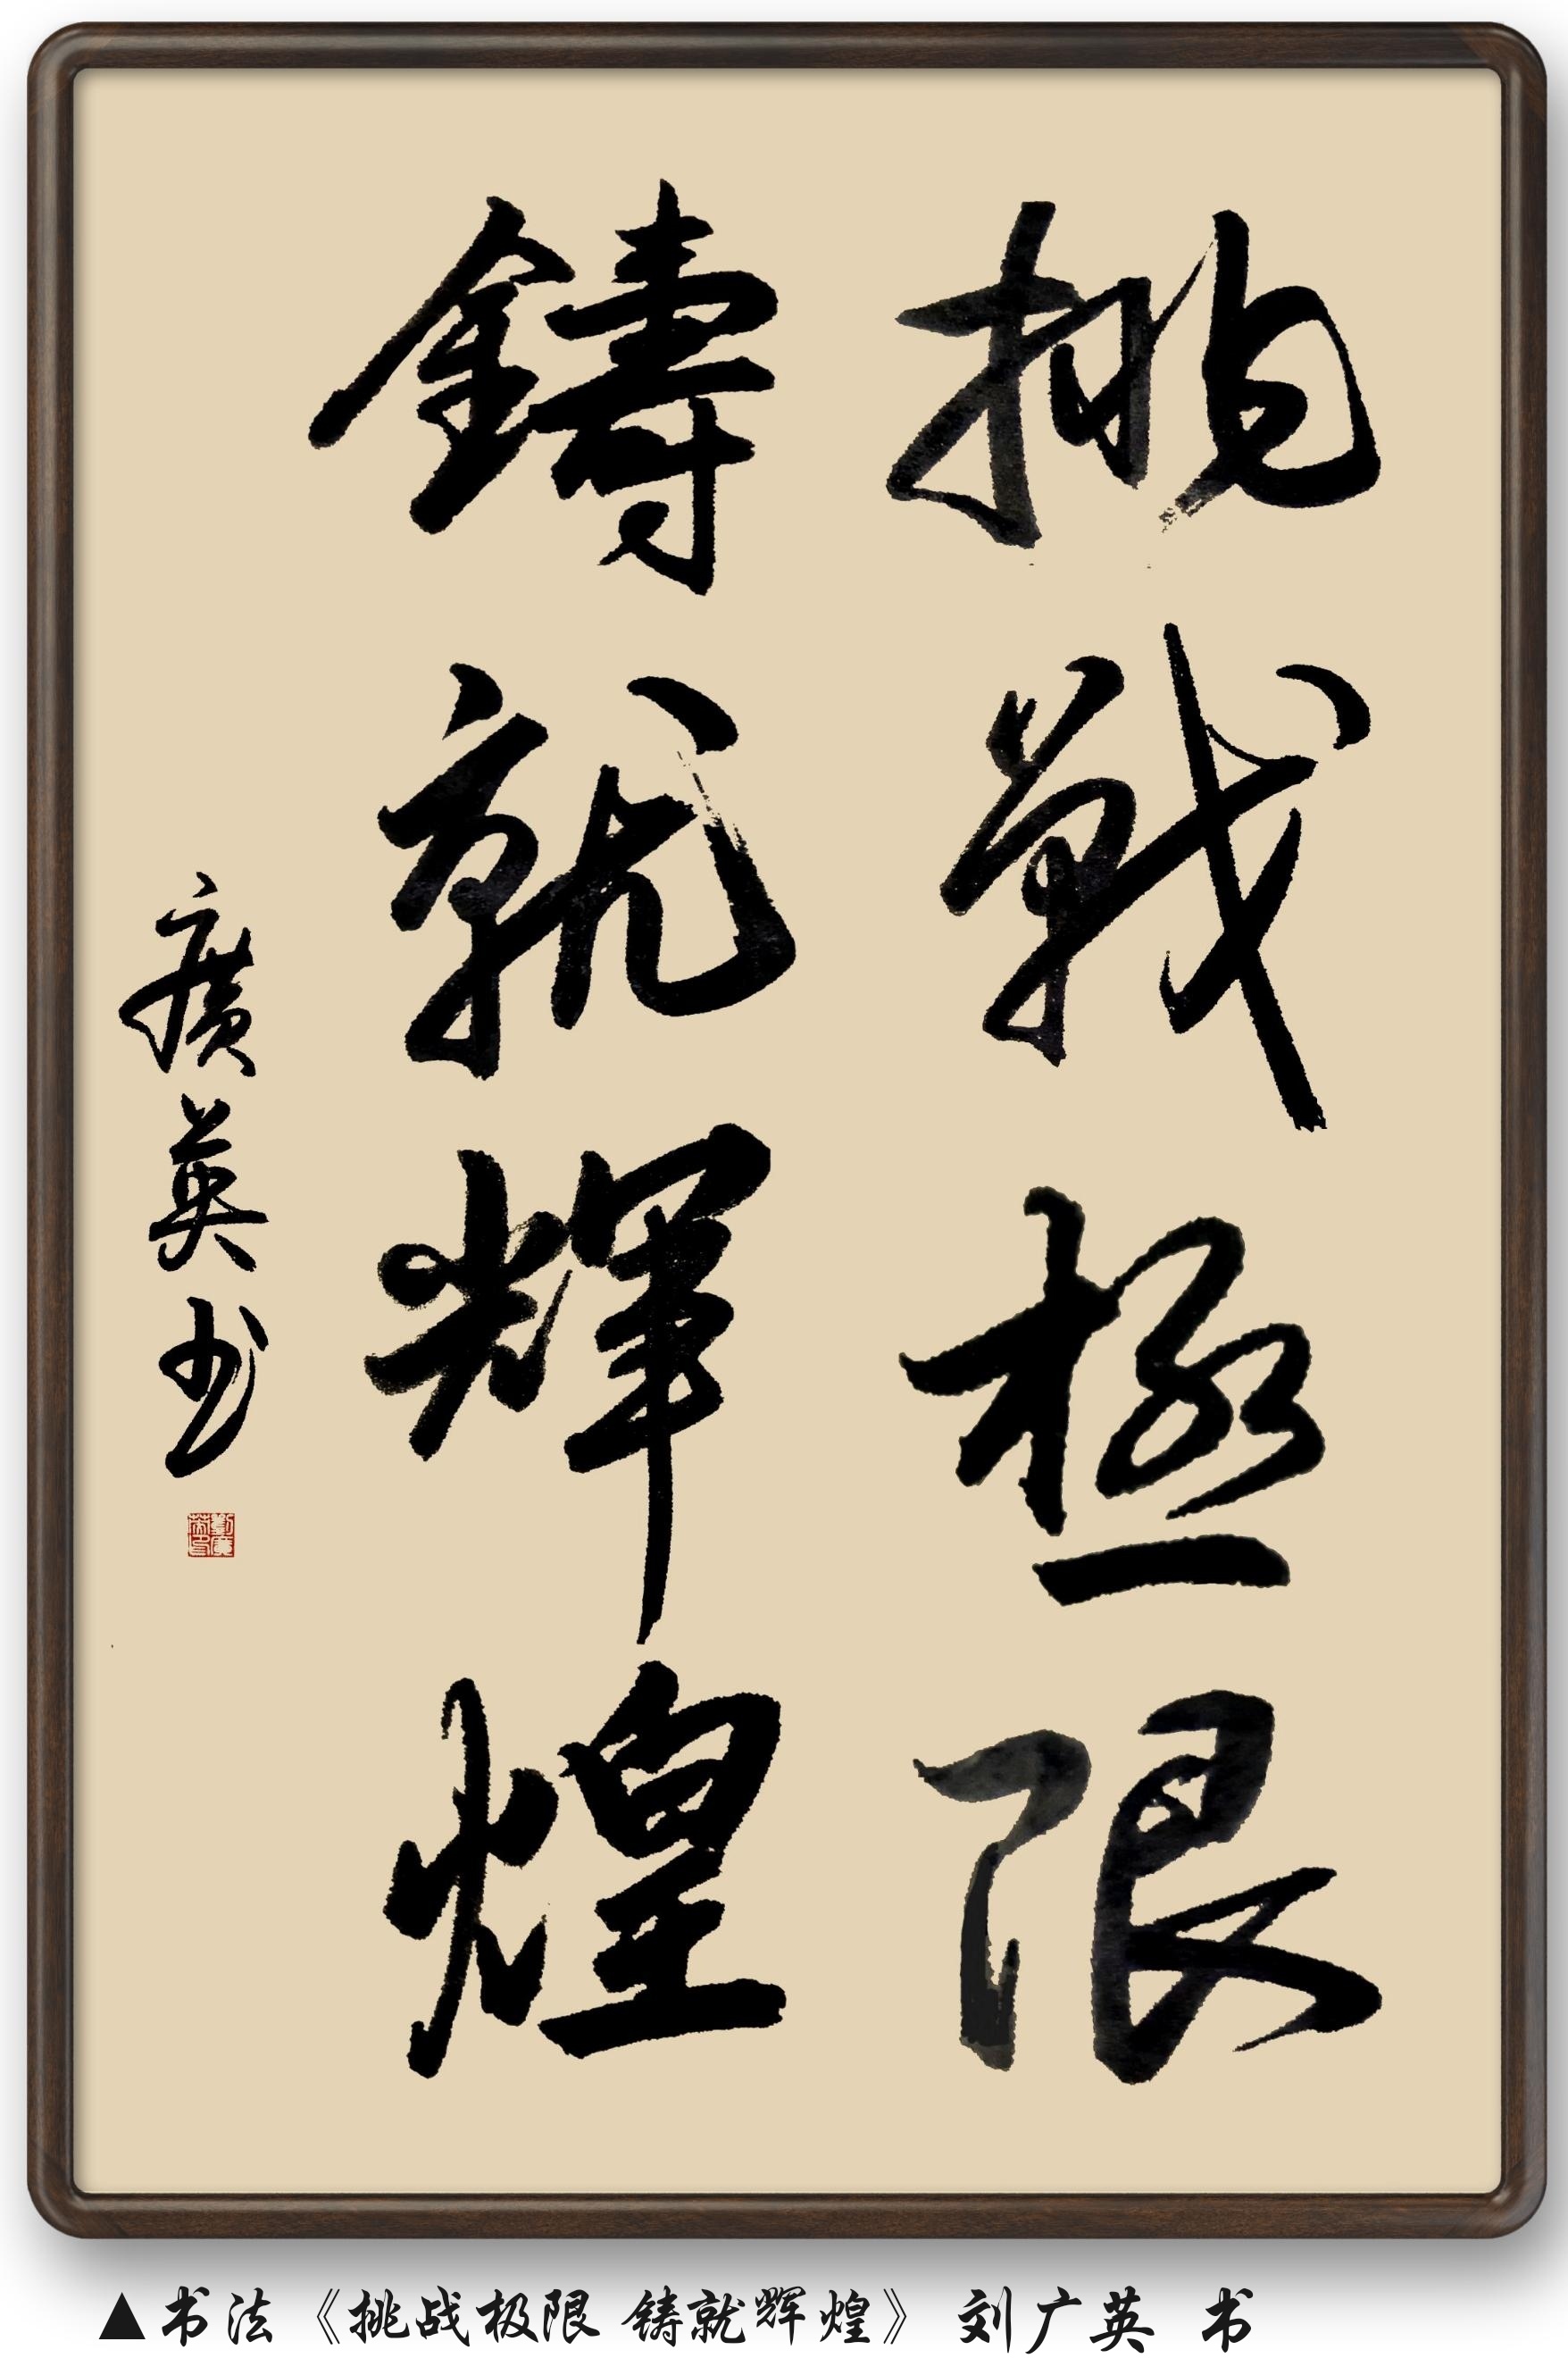 挑戰極限
鑄就輝煌
廣英书
劉廣英印
▲书法《挑战极限 铸就辉煌》 刘广英 书